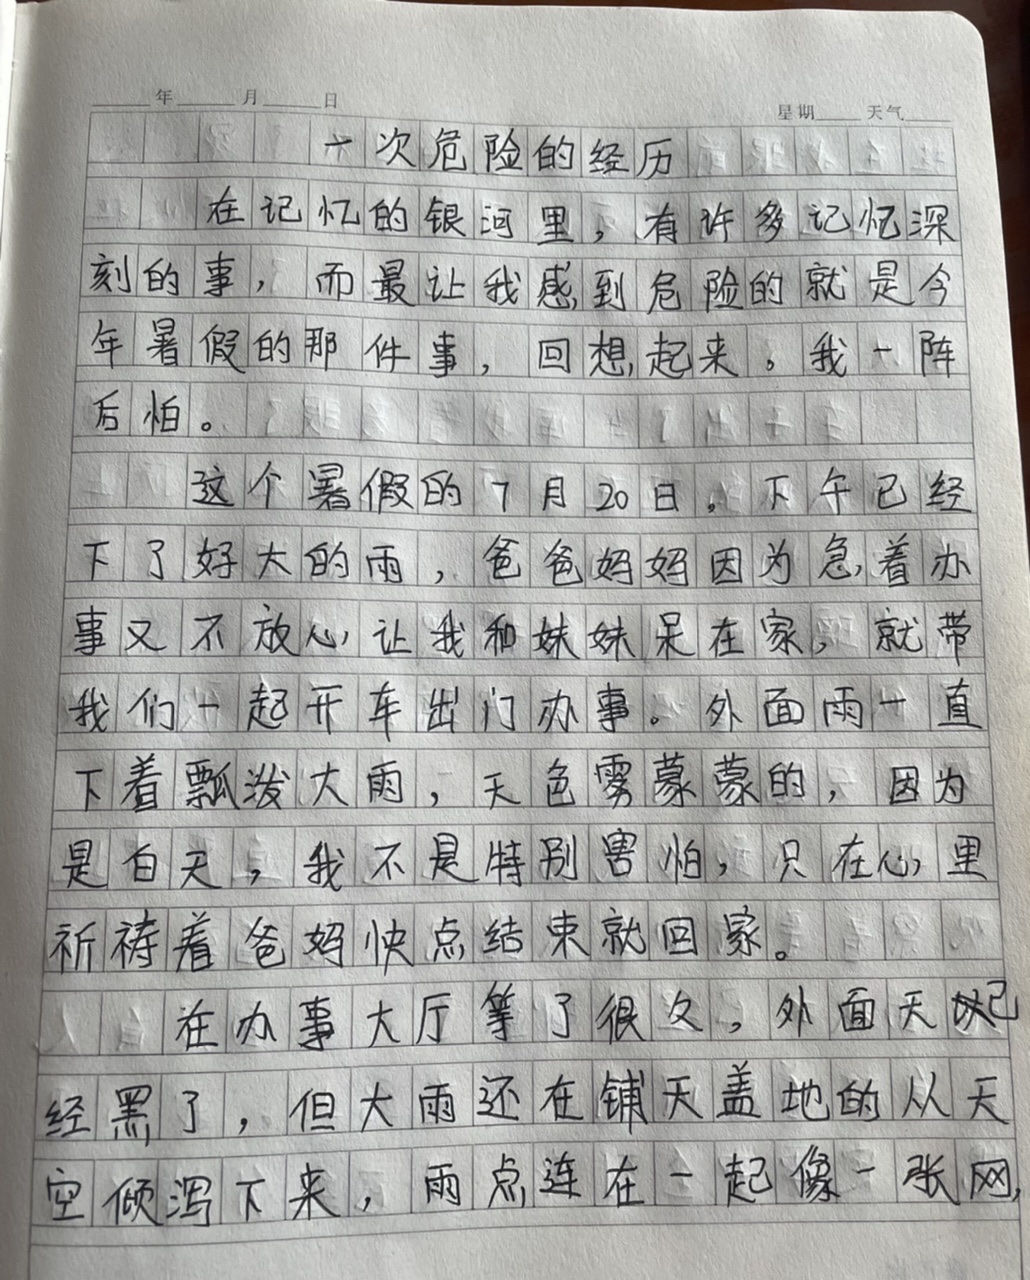 年 月 日
星期 天气
一次危险的经历
在记忆的银河里，有许多记忆深
刻的事，而最让我感到危险的就是今
年暑假的那件事，回想起来。我一阵
后怕。
这个暑假的7月20日，下午已经
下了好大的雨，爸爸妈妈因为急着办
事又不放心让我和妹妹呆在家，就带
我们一起开车出门办事。外面雨一直
下着瓢泼大雨，天色雾蒙蒙的，因为
是白天，我不是特别害怕，只在心里
祈祷着爸妈快点结束就回家。
在办事大厅等了很久，外面天已
经黑了，但大雨还在铺天盖地的从天
空倾泻下来，雨点连在一起像一张网，